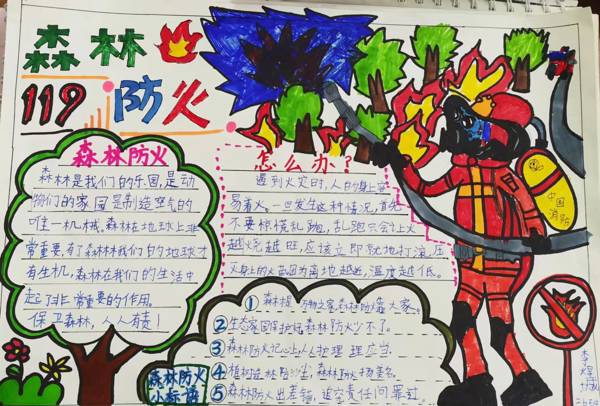 森林
119 防火
森林防火
森林是我们的乐园,是动
物们的家园是制造空气的
唯一机械,森林在地球上非
常重要,有了森林我们的地球才
有生机,森林在我们的生活中
起了非常重要的作用,
保卫森林,人人有责!
怎么办?
遇到火灾时,人的身上容
易着火,一旦发生这种情况,首先
不要惊慌乱跑,乱跑只会让火
越烧越旺,应该立即就地打滚,压
火身上的火苗因为离地越近,温度越低。
① 森林是万物之家,森林防火靠大家。
② 生态家园保护好,森林防火少不了。
③ 森林防火记心上,人护理 理应当,
④ 植树造林防沙尘,森林防火
⑤ 森林防火出差错,追究责任问罪过。
森林防火
小标语
中国
消防
李